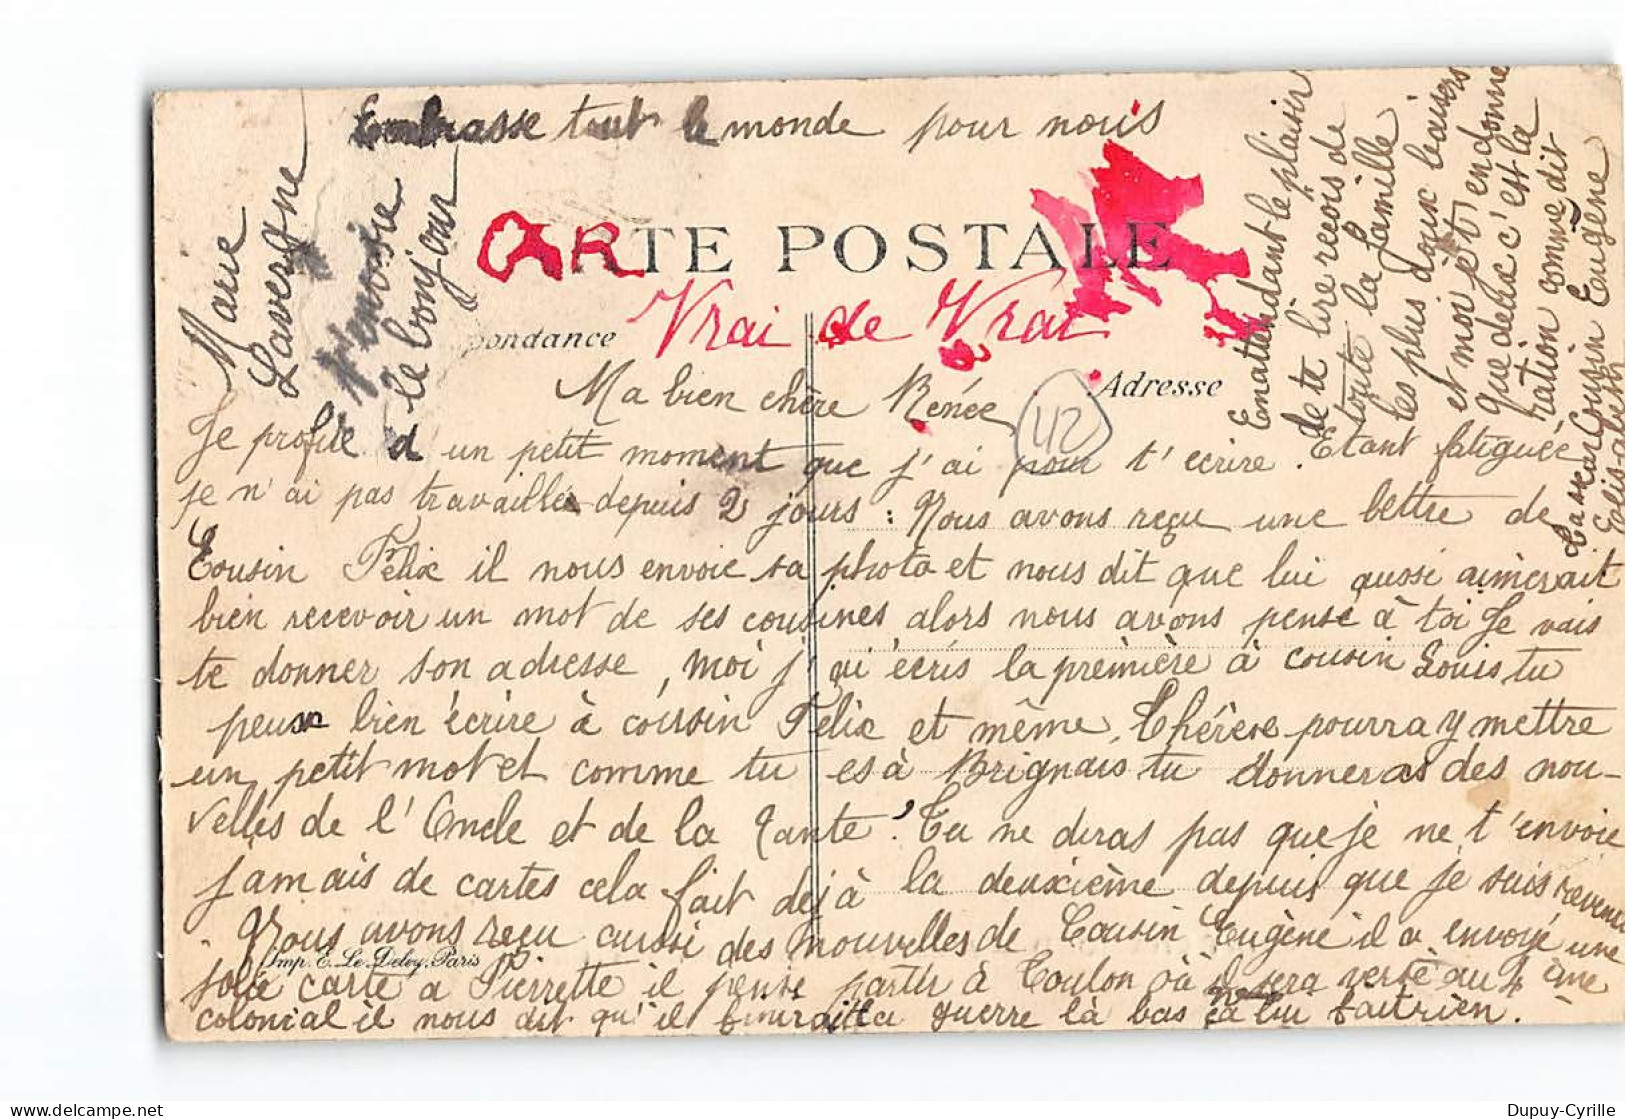 Embrasse tout le monde pour nous
Marie
Lavergne
t'envoie
le bonjour
CARTE POSTALE
Vrai de Vrai
pondance
Adresse
42
Ma bien chère Renée
Je profite d'un petit moment que j'ai pour t'écrire. Etant fatiguée
je n'ai pas travaillé depuis 2 jours : Nous avons reçu une lettre de
Cousin Félix il nous envoie sa photo et nous dit que lui aussi aimerait
bien recevoir un mot de ses cousines alors nous avons pensé à toi Je vais
te donner son adresse, moi j'ai écris la première à cousin Louis tu
peux bien écrire à cousin Félix et même, Thérèse pourra y mettre
un petit mot et comme tu es à Brignais tu donneras des nou-
velles de l'Oncle et de la Tante. Tu ne diras pas que je ne t'envoie
jamais de cartes cela fait dejà la deuxième depuis que je suis revenue
Nous avons reçu aussi des nouvelles de Cousin Eugène il a envoyé une
Imp. E. Le Deley, Paris
jolie carte a Pierrette il pense partir à Toulon où il sera versé au 4 ème
colonial il nous dit qu'il finira la guerre là bas ça lui fait rien.
En attendant le plaisir
de te lire reçois de
toute la famille
les plus doux baisers
et moi je t'en donne
que deux c'est la
ration comme dit
Cousin Eugène
Elisabeth
Dupuy-Cyrille